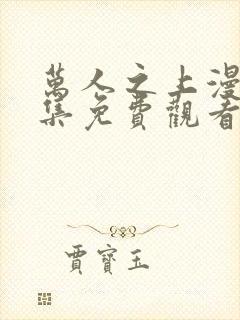 萬人之上漫
集免費觀看
賈寶玉